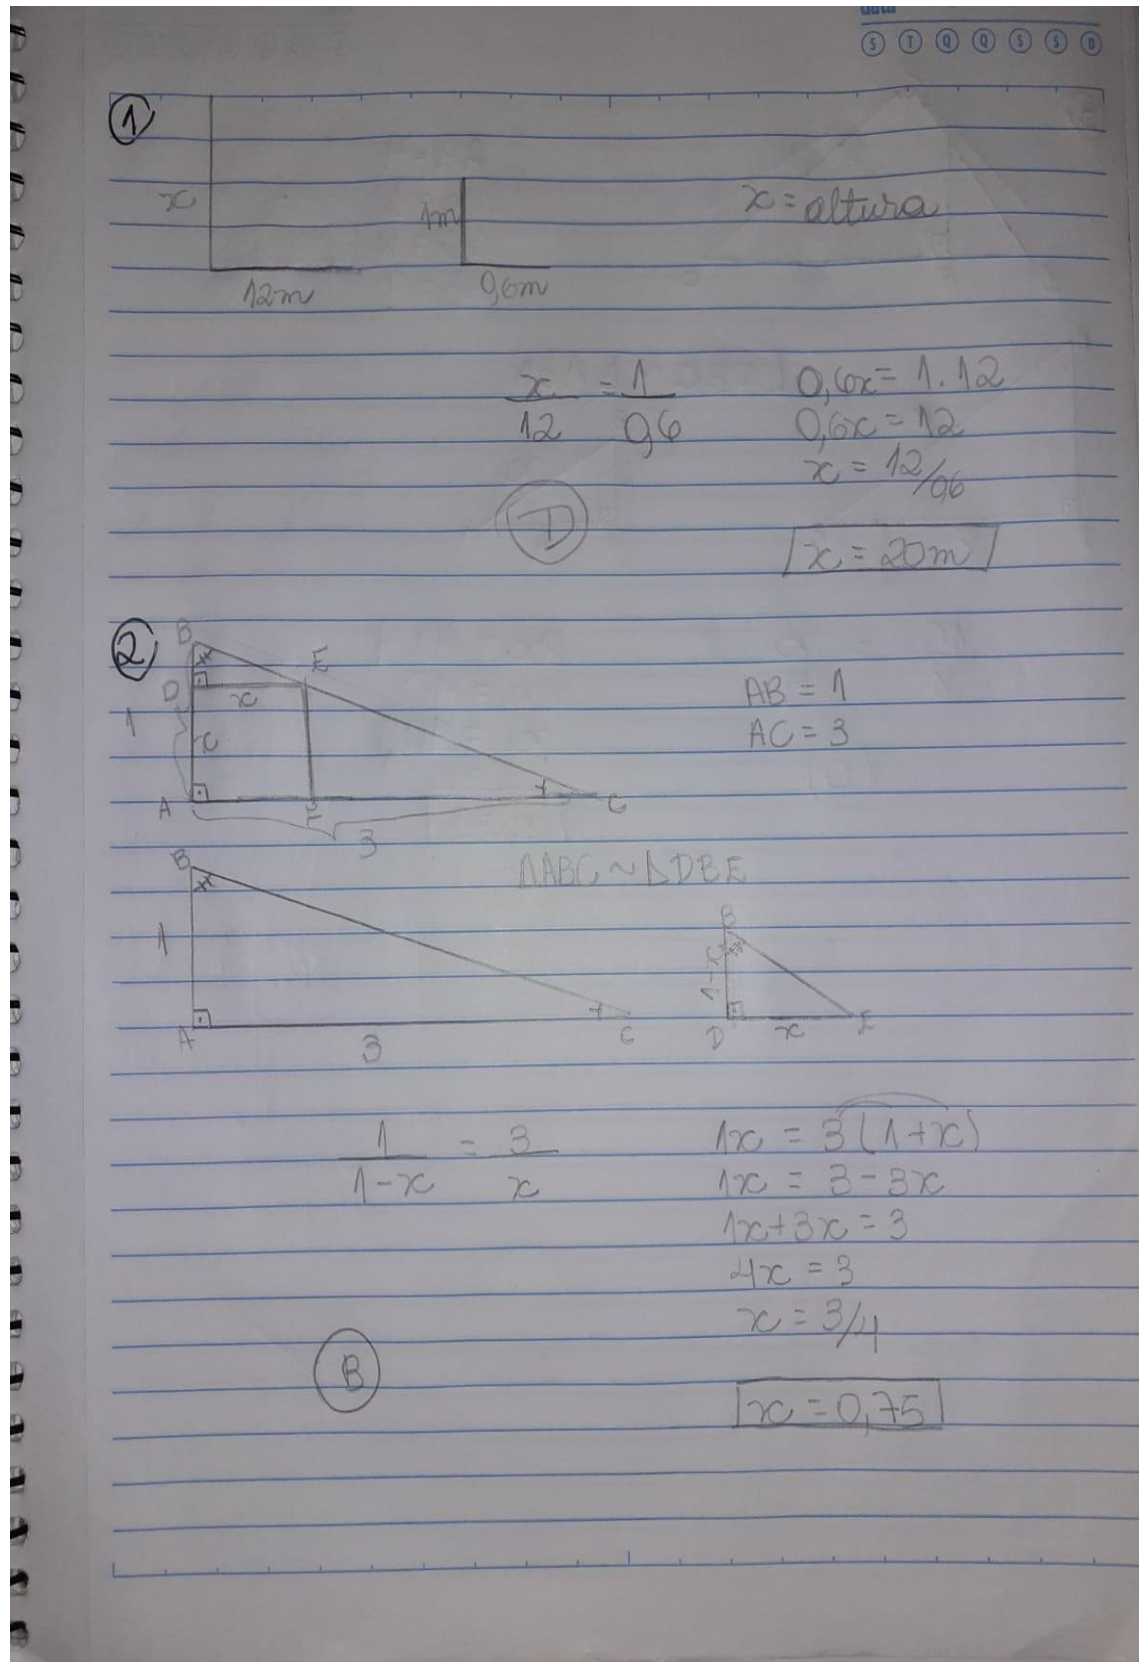 data
S T Q Q S S D
1
x
1m
x = altura
12m
0,6m
x/12 = 1/0,6
0,6x = 1.12
0,6x = 12
x = 12/0,6
D
x = 20m
2
B
E
D
x
1
x
AB = 1
AC = 3
A
F
C
3
B
ΔABC ~ ΔDBE
1
B
1-x
A
3
C
D
x
E
1/1-x = 3/x
1x = 3(1+x)
1x = 3 - 3x
1x+3x = 3
4x = 3
x = 3/4
B
x = 0,75